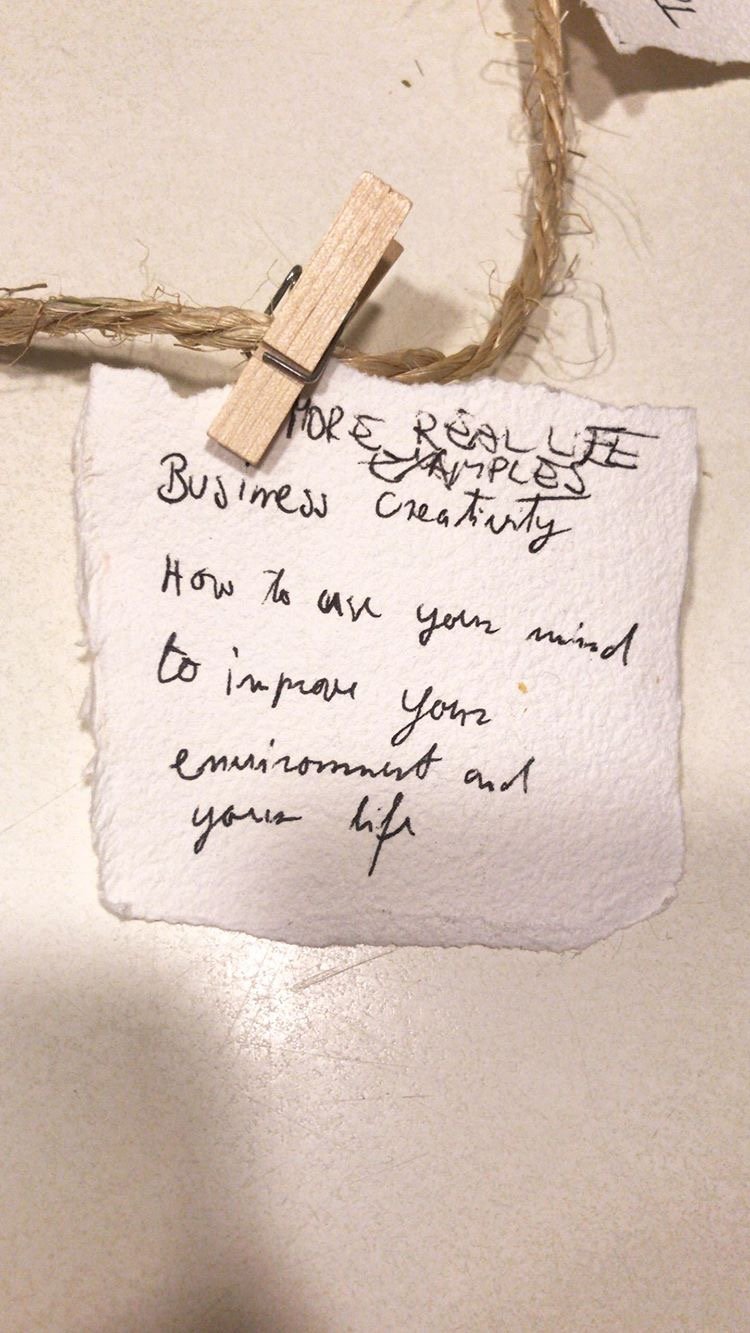 MORE REAL LIFE
EXAMPLES
Business Creativity
How to use your mind
to improve your
environment and
your life